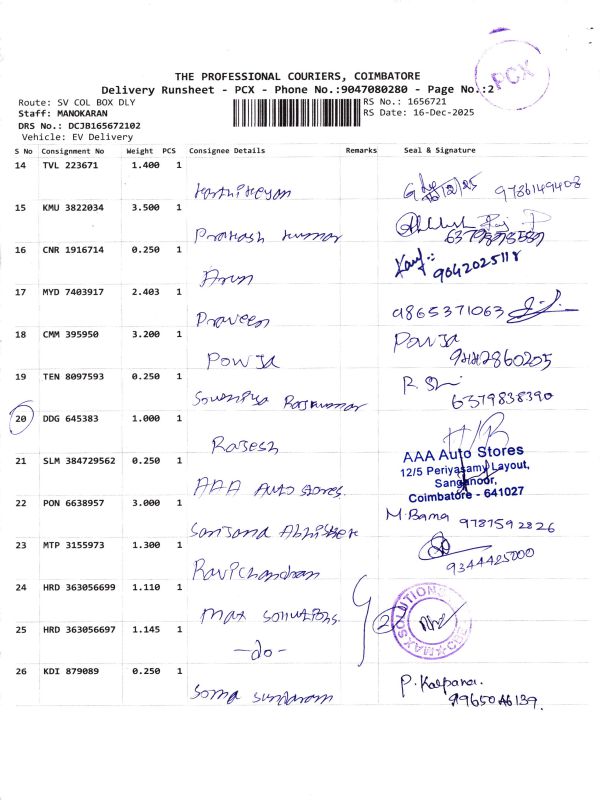 PCX
THE PROFESSIONAL COURIERS, COIMBATORE
Delivery Runsheet - PCX - Phone No.:9047080280 - Page No.:2
Route: SV COL BOX DLY
RS No.: 1656721
Staff: MANOKARAN
RS Date: 16-Dec-2025
DRS No.: DCJB165672102
Vehicle: EV Delivery
S No Consignment No Weight PCS Consignee Details Remarks Seal & Signature
14 TVL 223671 1.400 1
Karthikeyan 16/12/25 9786149408
15 KMU 3822034 3.500 1
Prakash Kumar
16 CNR 1916714 0.250 1
Arun 9042025118
17 MYD 7403917 2.403 1
Praveen 9865371063
18 CMM 395950 3.200 1
Powja Powja
19 TEN 8097593 0.250 1
Sowmiya Rajkumar 6379838390
20 DDG 645383 1.000 1
Rajesh
21 SLM 384729562 0.250 1
AAA Auto Stores
12/5 Periyasamy Layout,
Sanganoor,
Coimbatore - 641027
AAA Auto Stores.
22 PON 6638957 3.000 1
M. Bama 9787592826
Sanjana Abhishek
23 MTP 3155973 1.300 1
Ravichandran 9344425000
24 HRD 363056699 1.110 1
Max Solutions. 2
MAX SOLUTIONS
25 HRD 363056697 1.145 1
-do-
26 KDI 879089 0.250 1
Soma Sundaram P. Kalpana.
9965046139.